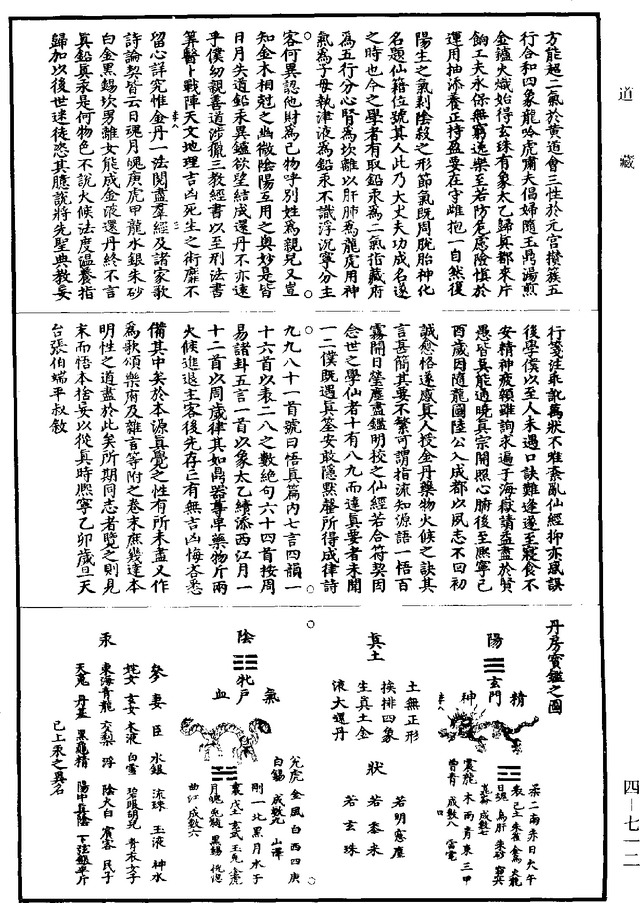 道藏
方能超二氣於黃道會三性於元宮攢簇五
行合和四象龍吟虎嘯夫倡婦隨玉鼎湯煎
金鑪火熾始得玄珠有象太乙歸真都來片
餉工夫永保無窮逸樂至若防危慮險慎於
運用抽添養正持盈要在守雌抱一自然復
陽生之氣剝陰殺之形節氣既周脫胎神化
名題仙籍位號真人此乃大丈夫功成名遂
之時也今之學者有取鉛汞為二氣指藏府
為五行分心腎為坎離以肝肺為龍虎用神
氣為子母執津液為鉛汞不識浮沉寧分主
客何異認他財為己物呼別姓為親兒又豈
知金木相尅之幽微陰陽互用之奧妙是皆
日月失道鉛汞異鑪欲望結成還丹不亦遠
乎僕幼親善道涉獵三教經書以至刑法書
算醫卜戰陣天文地理吉凶死生之術靡不
留心詳究惟金丹一法閱盡羣經及諸家歌
詩論契皆云日魂月魄庚虎甲龍水銀朱砂
白金黑錫坎男離女能成金液還丹終不言
真鉛真汞是何物色不說火候法度溫養指
歸加以後世迷徒恣其臆說將先聖典教妄
行箋注乖訛萬狀不唯紊亂仙經抑亦惑誤
後學僕以至人未遇口訣難逢遂至寢食不
安精神疲頓雖詢求遍于海嶽請益盡於賢
愚皆莫能通曉真宗開照心腑後至熙寧己
酉歲因隨龍圖陸公入成都以夙志不回初
誠愈恪遂感真人授金丹藥物火候之訣其
言甚簡其要不繁可謂指流知源語一悟百
霧開日瑩塵盡鑑明校之仙經若合符契因
念世之學仙者十有八九而達真要者未聞
一二僕既遇真筌安敢隱默罄所得成律詩
九九八十一首號曰悟真篇內七言四韻一
十六首以表二八之數絕句六十四首按周
易諸卦五言一首以象太乙續添西江月一
十二首以周歲律其如鼎器尊卑藥物斤兩
火候進退主客後先存亡有無吉凶悔吝悉
備其中矣於本源真覺之性有所未盡又作
為歌頌樂府及雜言等附之卷末庶幾達本
明性之道盡於此矣所期同志者覽之則見
末而悟本捨妄以從真時熙寧乙卯歲旦天
台張伯端平叔敘
丹房寶鑑之圖
陽
玄門
精
神
柔二南赤日火午
震龍木雨青東三甲
曾青成數八雷電
真土
土無正形
挨排四象
生真土金
液大還丹
狀
若明窓塵
若黍米
若玄珠
陰
牝戶
氣
血
兊虎金風白西四庚
白錫成數九山澤
剛一北黑月水子
曲江成數六
汞
參妻臣水銀流珠玉液神水
姹女玄女木液白雪碧眼胡兒青衣女子
東海青龍交梨浮陰火白
天魂丹基黑龜精陽中真陰下弦銀半斤
已上汞之異名
四—七一二